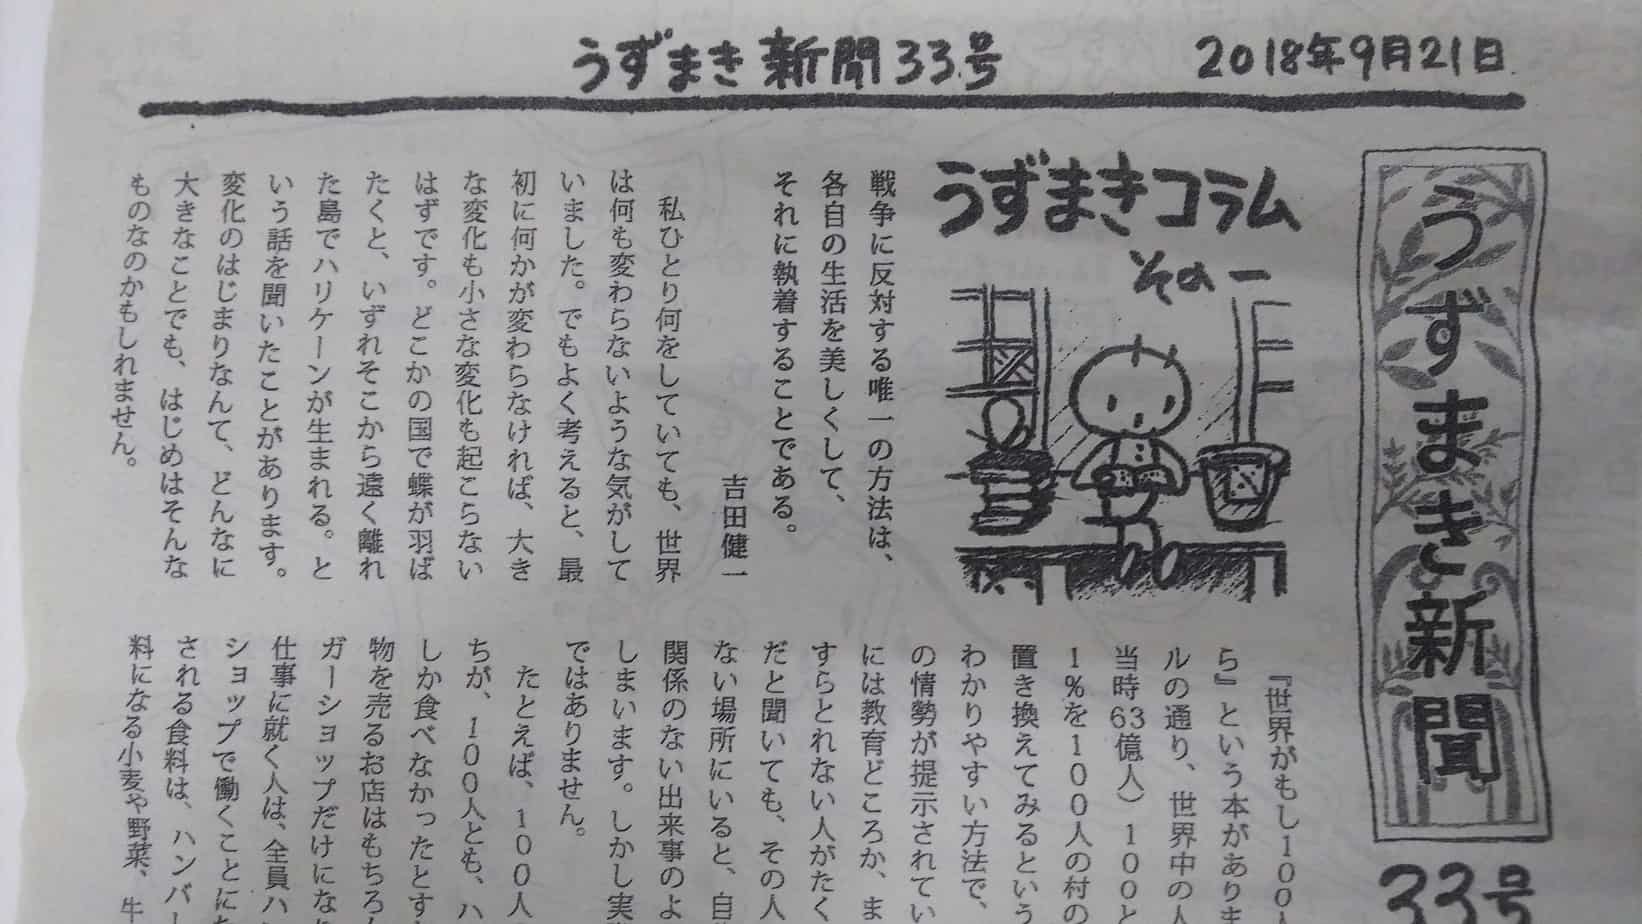 うずまき新聞33号
2018年9月21日
うずまき新聞
33号
うずまきコラム
その一
戦争に反対する唯一の方法は、
各自の生活を美しくして、
それに執着することである。
吉田健一
私ひとり何をしていても、世界
は何も変わらないような気がして
いました。でもよく考えると、最
初に何かが変わらなければ、大き
な変化も小さな変化も起こらない
はずです。どこかの国で蝶が羽ば
たくと、いずれそこから遠く離れ
た島でハリケーンが生まれる。と
いう話を聞いたことがあります。
変化のはじまりなんて、どんなに
大きなことでも、はじめはそんな
ものなのかもしれません。
『世界がもし100人
ら』という本がありま
ルの通り、世界中の人
当時63億人）100と
1%を100人の村の
置き換えてみるという
わかりやすい方法で、
の情勢が提示されてい
には教育どころか、ま
すらとれない人がたく
だと聞いても、その人
ない場所にいると、自
関係のない出来事のよ
しまいます。しかし実
ではありません。
たとえば、100人
ちが、100人とも、ハ
しか食べなかったとす
物を売るお店はもちろ
ガーショップだけにな
仕事に就く人は、全員ハン
ショップで働くことにな
される食料は、ハンバー
料になる小麦や野菜、牛